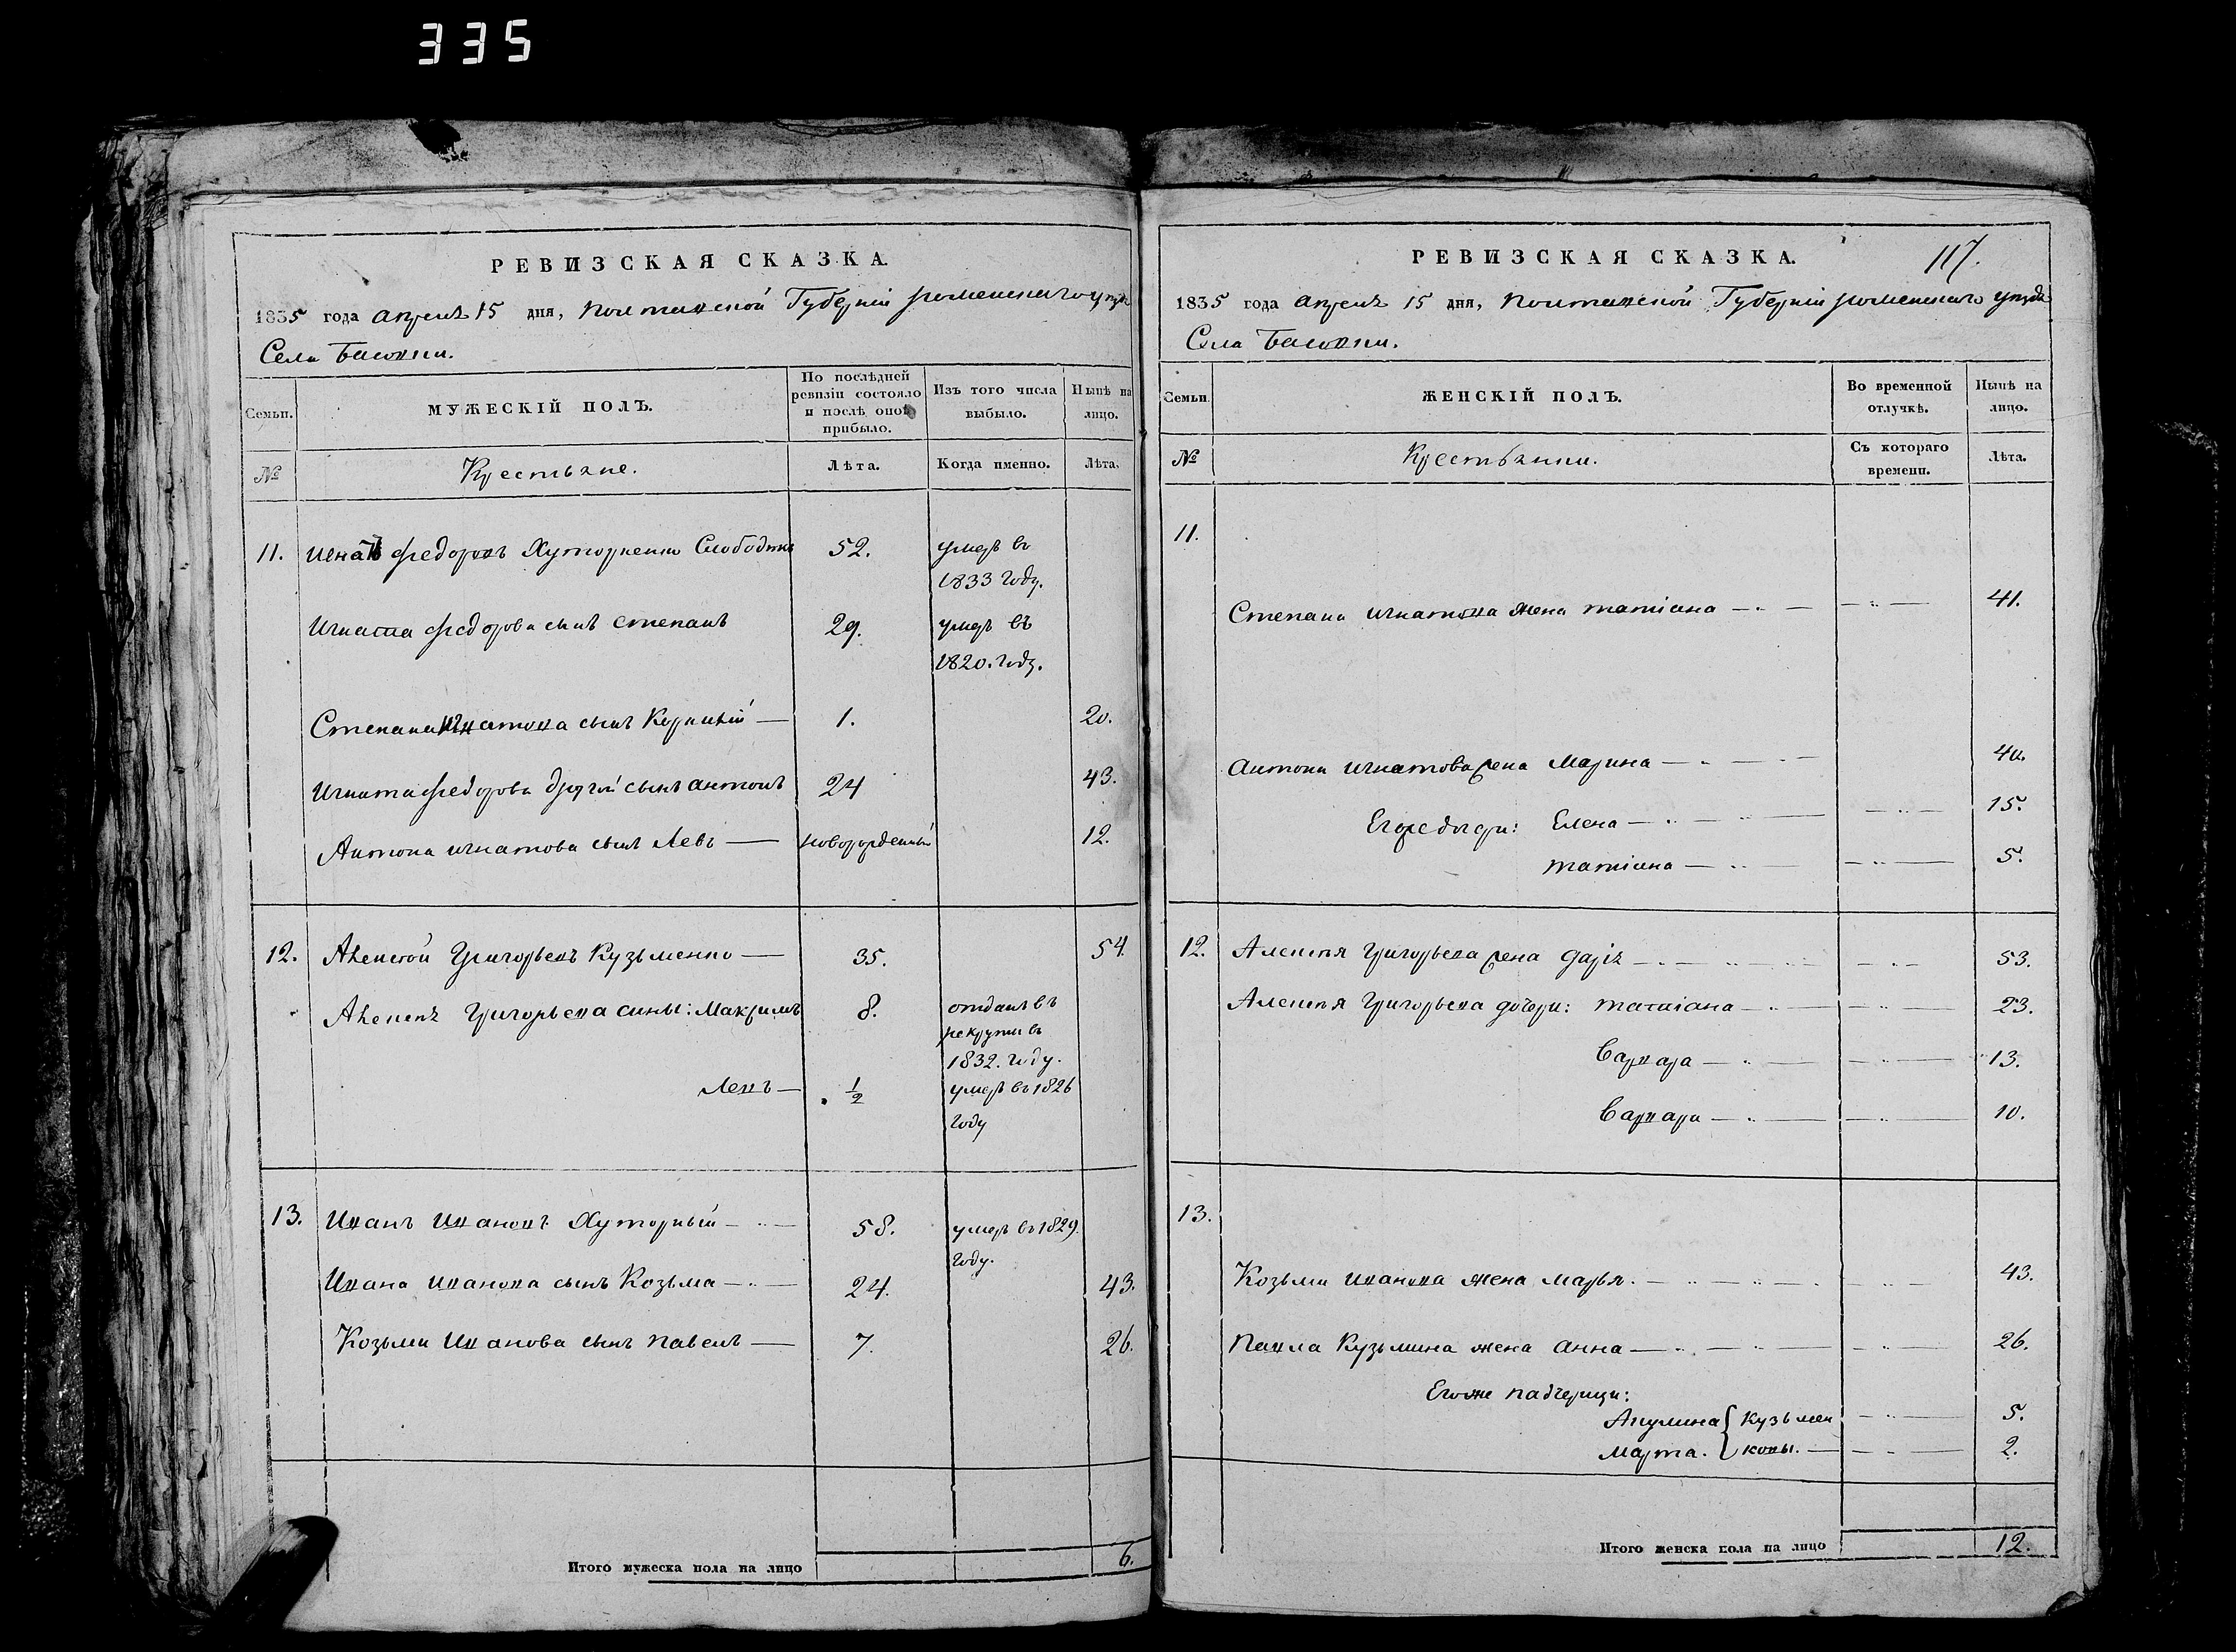 335
РЕВИЗСКАЯ СКАЗКА.
1835 года апреля 15 дня, Полтавской Губерніи роменскаго уезда
Села Басовки.
Семьи. МУЖЕСКІЙ ПОЛЪ. По послѣдней ревизіи состояло и послѣ оной прибыло. Изъ того числа выбыло. Нынѣ на лицо.
№ Крестьяне. Лѣта. Когда именно. Лѣта.
11. Игнатъ Федоровъ Хуторненко 52. умеръ въ
1833 году.
Игната Федорова сынъ Степанъ 29. умеръ въ
1820. году.
Степана Игнатова сынъ Корнилій — 1. 20.
Игната Федорова другой сынъ антонъ 24 43.
Антона игнатова сынъ Левъ — новорожденный 12.
12. Алексей Григорьевъ Кузьменко — 35. 54.
Алексея Григорьева сины: Максимъ 8. отданъ въ
рекруты въ
1832. году.
Левъ — 1/2 умеръ въ 1826
году
13. Иванъ Ивановъ Хуторный — 58. умеръ въ 1829.
году.
Ивана Иванова сынъ Козьма — 24. 43.
Козьми Иванова сынъ Павелъ — 7. 26.
Итого мужеска пола на лицо 6.
РЕВИЗСКАЯ СКАЗКА. 117.
1835 года апреля 15 дня, Полтавской Губерніи роменскаго уезда
Села Басовки.
Семьи. ЖЕНСКІЙ ПОЛЪ. Во временной отлучкѣ. Нынѣ на лицо.
№ Крестьянки. Съ котораго времени. Лѣта.
11.
Степана Игнатова жена татіана — 41.
Антона игнатова жена Марина — 40.
Егоже дочери: Елена — 15.
татіана — 5.
12. Алексея Григорьева жена Дарія — 53.
Алексея Григорьева дочери: татіана — 23.
Варвара — 13.
Варвара — 10.
13.
Козьми Иванова жена Марья. — 43.
Павла Кузьмина жена анна — 26.
Егоже падчерици:
Акулина { Кузьмен 5.
Марта. { ковы. — 2.
Итого женска пола на лицо 12.